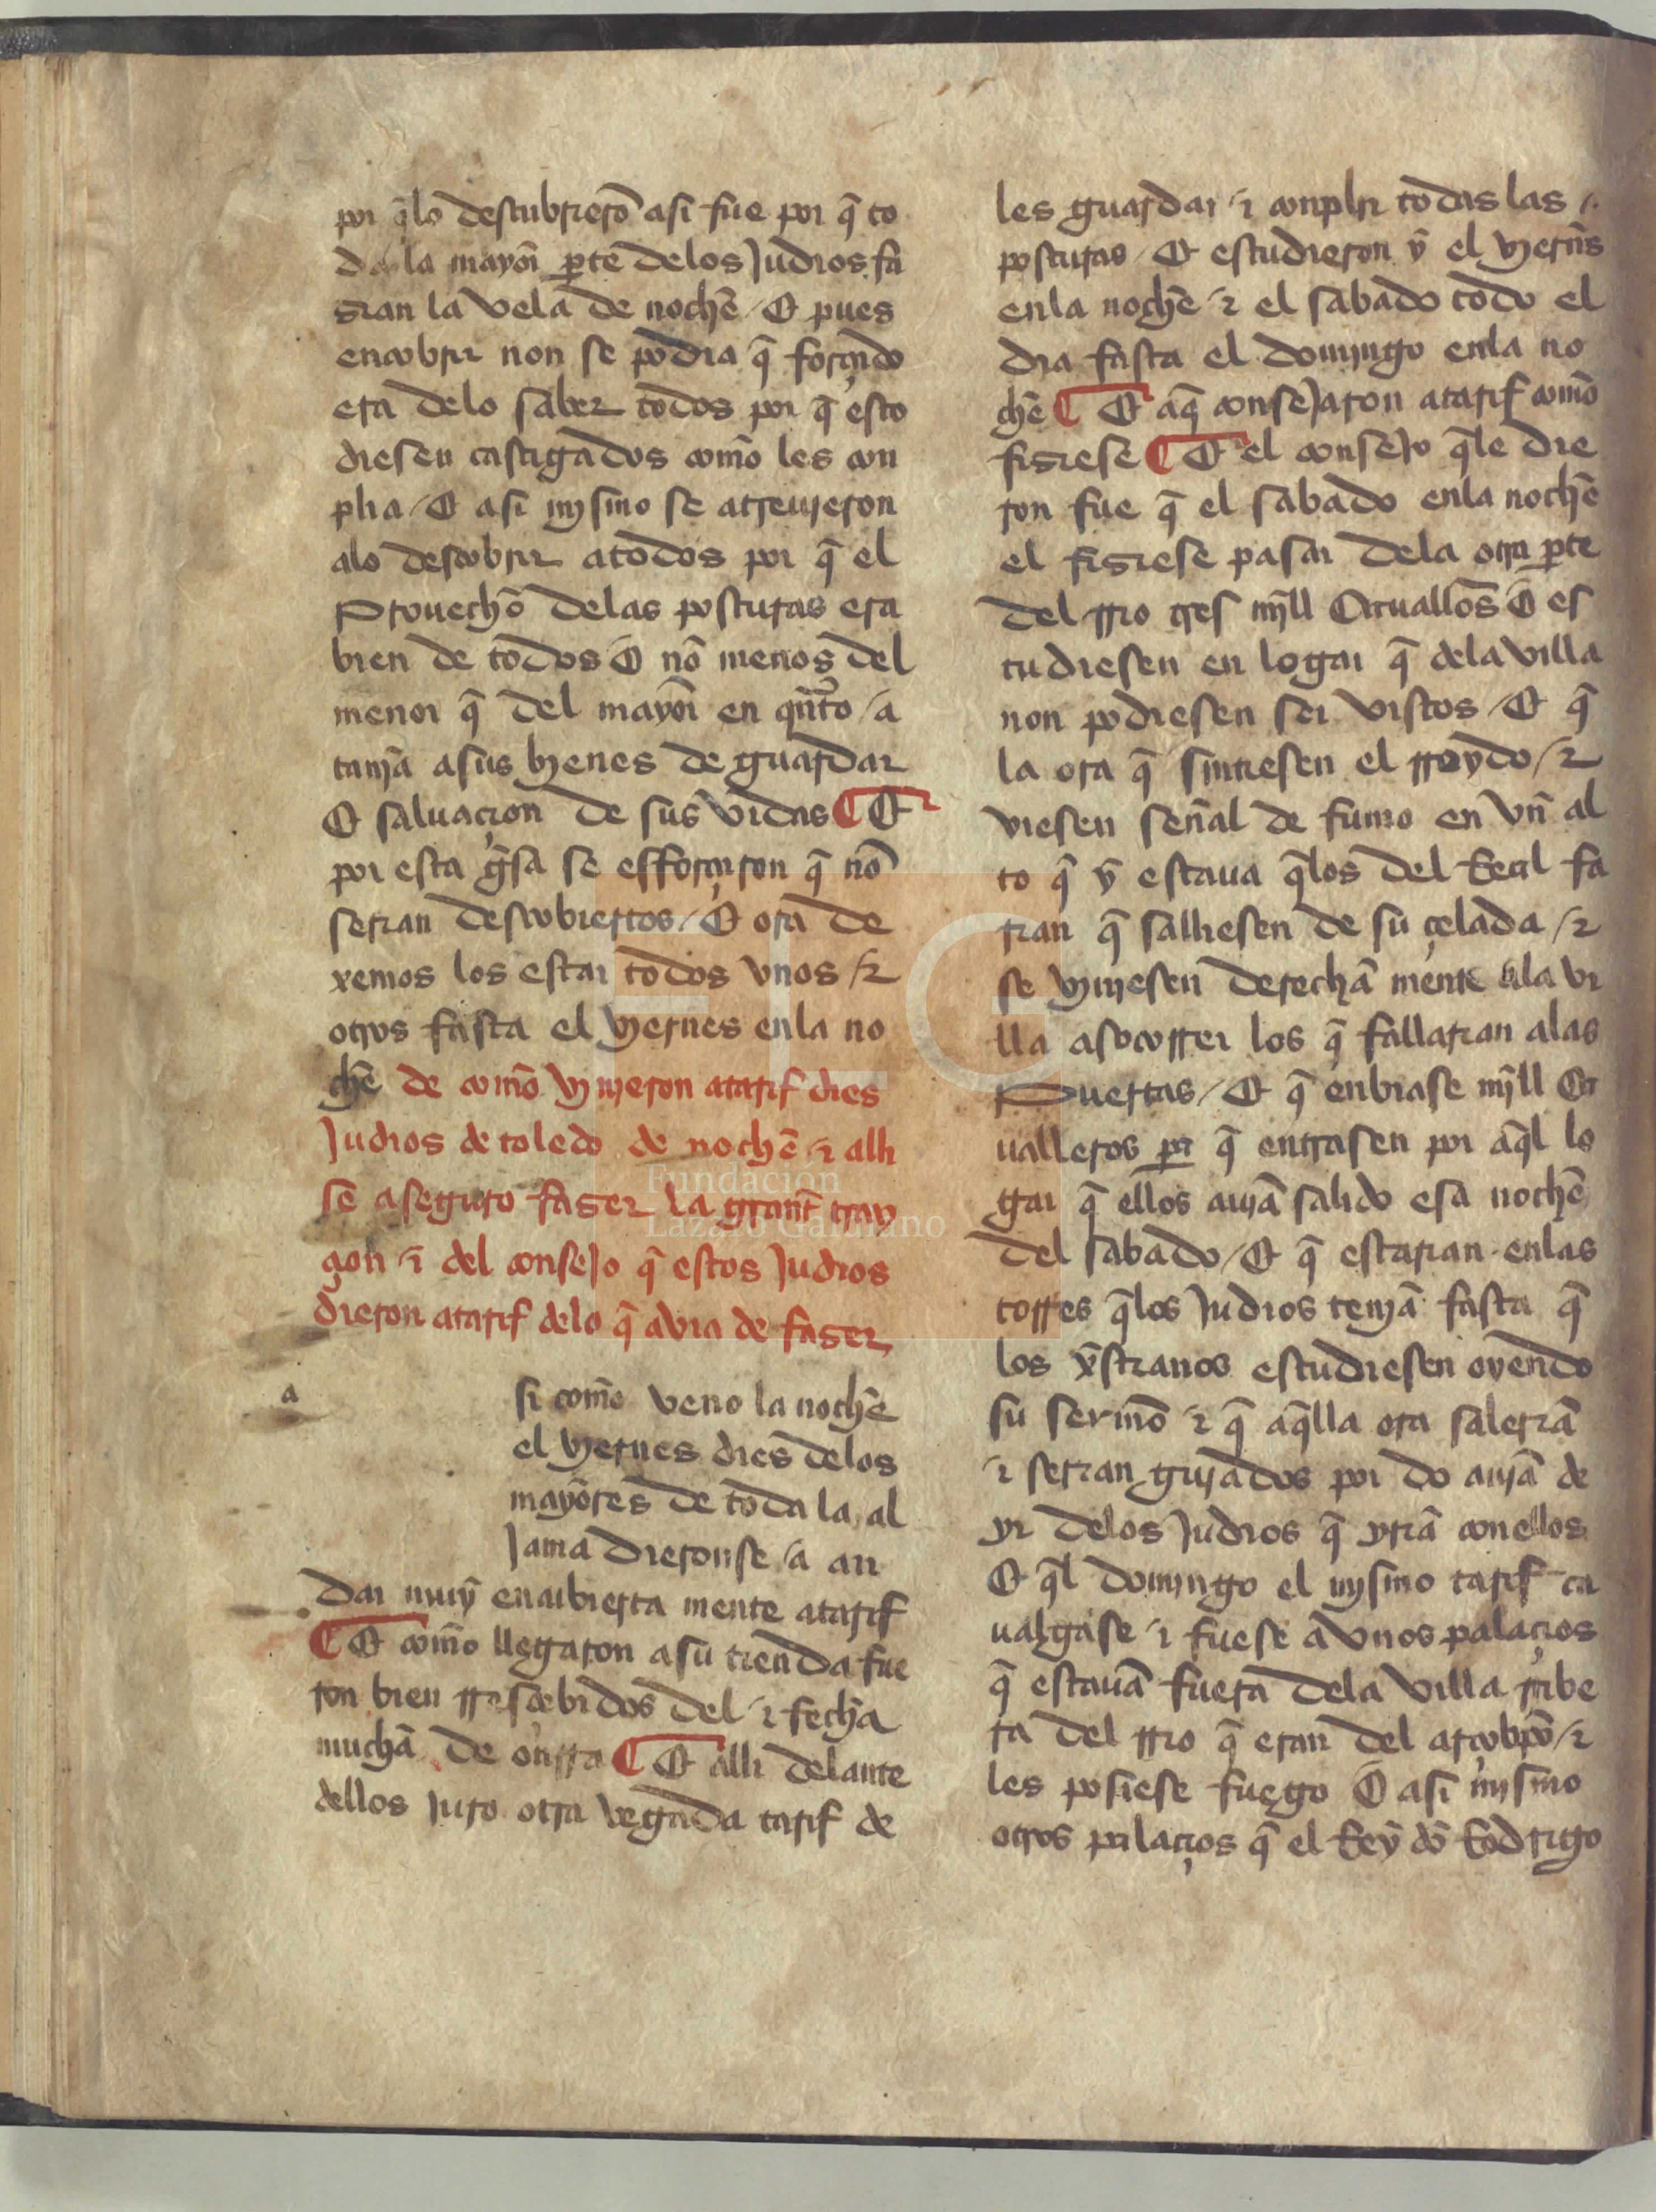 por q̃lo descubrierõ asi fue por q̃ to
da la mayor̃ ꝑte delos Judios fa
zian la vela de noch̃e / E pues
encobrir non se podia q̃ forçado
era delo saber todos por q̃ esto
diesen castigados com̃o les con
plia / E asi mjsmo se atreujeron
alo descobrir atodos por q̃ el
Prouech̃o delas posturas era
bien de todos E nõ menos del
menor q̃ del mayor̃ en qñto / a
tanjã asus bjenes de guardar
E saluaçion de sus vidas ¶ Et
por esta g̃sa se efforçaron q̃ nõ
serian descobiertos / E ora de
xemos los estar todos vnos / ⁊
otros fasta el vjernes enla no
ch̃e de com̃o vjnjeron atarif dies
Judios de toledo de noch̃e ⁊ alli
se aseguro faser la grant̃ tray
çon ⁊ del consejo q̃ estos Judios
dieron atarif delo q̃ avia de faser
a
si com̃o veno la noch̃e
el vjernes dies delos
mayores de toda la al
Jama dieronse / a an
dar muy encubierta mente atarif
¶ Et com̃o llegaron asu tienda fue
ron bien rrasçebidos del / ⁊ fech̃a
much̃a de onrra ¶ Et alli delante
dellos juro otra vegada tarif de
les guardar / ⁊ conplir todas las
posturas / Et estudieron ỹ el vjerñs
enla noch̃e / ⁊ el sabado todo el
dia fasta el domjngo enla no
ch̃e ¶ Et aq̃ consejaron atarif com̃o
fisiese ¶ Et el consejo q̃le die
ron fue q̃ el sabado enla noch̃e
el fisiese pasar dela otra ꝑte
del rrio tres mjll Cauallos E es
tudiesen en logar q̃ dela villa
non podiesen ser vistos / Et q̃
la ora q̃ sintiesen el rroydo / ⁊
viesen señal de fumo en vñ al
to q̃ ỹ estaua q̃los del Real fa
rian q̃ salliesen de su çelada / ⁊
se vjnjesen derech̃a mente ala vi
lla asocorrer los q̃ fallarian alas
Puertas / Et q̃ enbiase mjll Ca
ualleros ꝑa q̃ entrasen por aq̃l lo
gar q̃ ellos aujã salido esa noch̃e
del sabado / Et q̃ estarian enlas
torres q̃los Judios tenjã fasta q̃
los xp̃stianos estudiesen oyendo
su sermõ ⁊ q̃ aq̃lla ora saleriã
⁊ serian gujados por do aujã de
yr delos Judios q̃ yriã conellos
E q̃l domjngo el mjsmo tarif ca
ualgase ⁊ fuese a vnos palaçios
q̃ estauã fuera dela villa ribe
ra del rrio q̃ eran del arçobpõ / ⁊
les posiese fuego E asi mjsmo
otros palaçios q̃ el Rey dõ Rodrigo
Fundación
Lázaro Galdiano